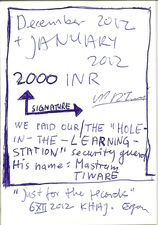 December 2012
+ JANUARY
2012
2000 INR
SIGNATURE
WE PAID OUR/THE "HOLE-
IN-THE-LEARNING-
STATION" security guard
His name: Mastram
TIWARE
"Just for the records"
6 XII 2012 KHAJ.